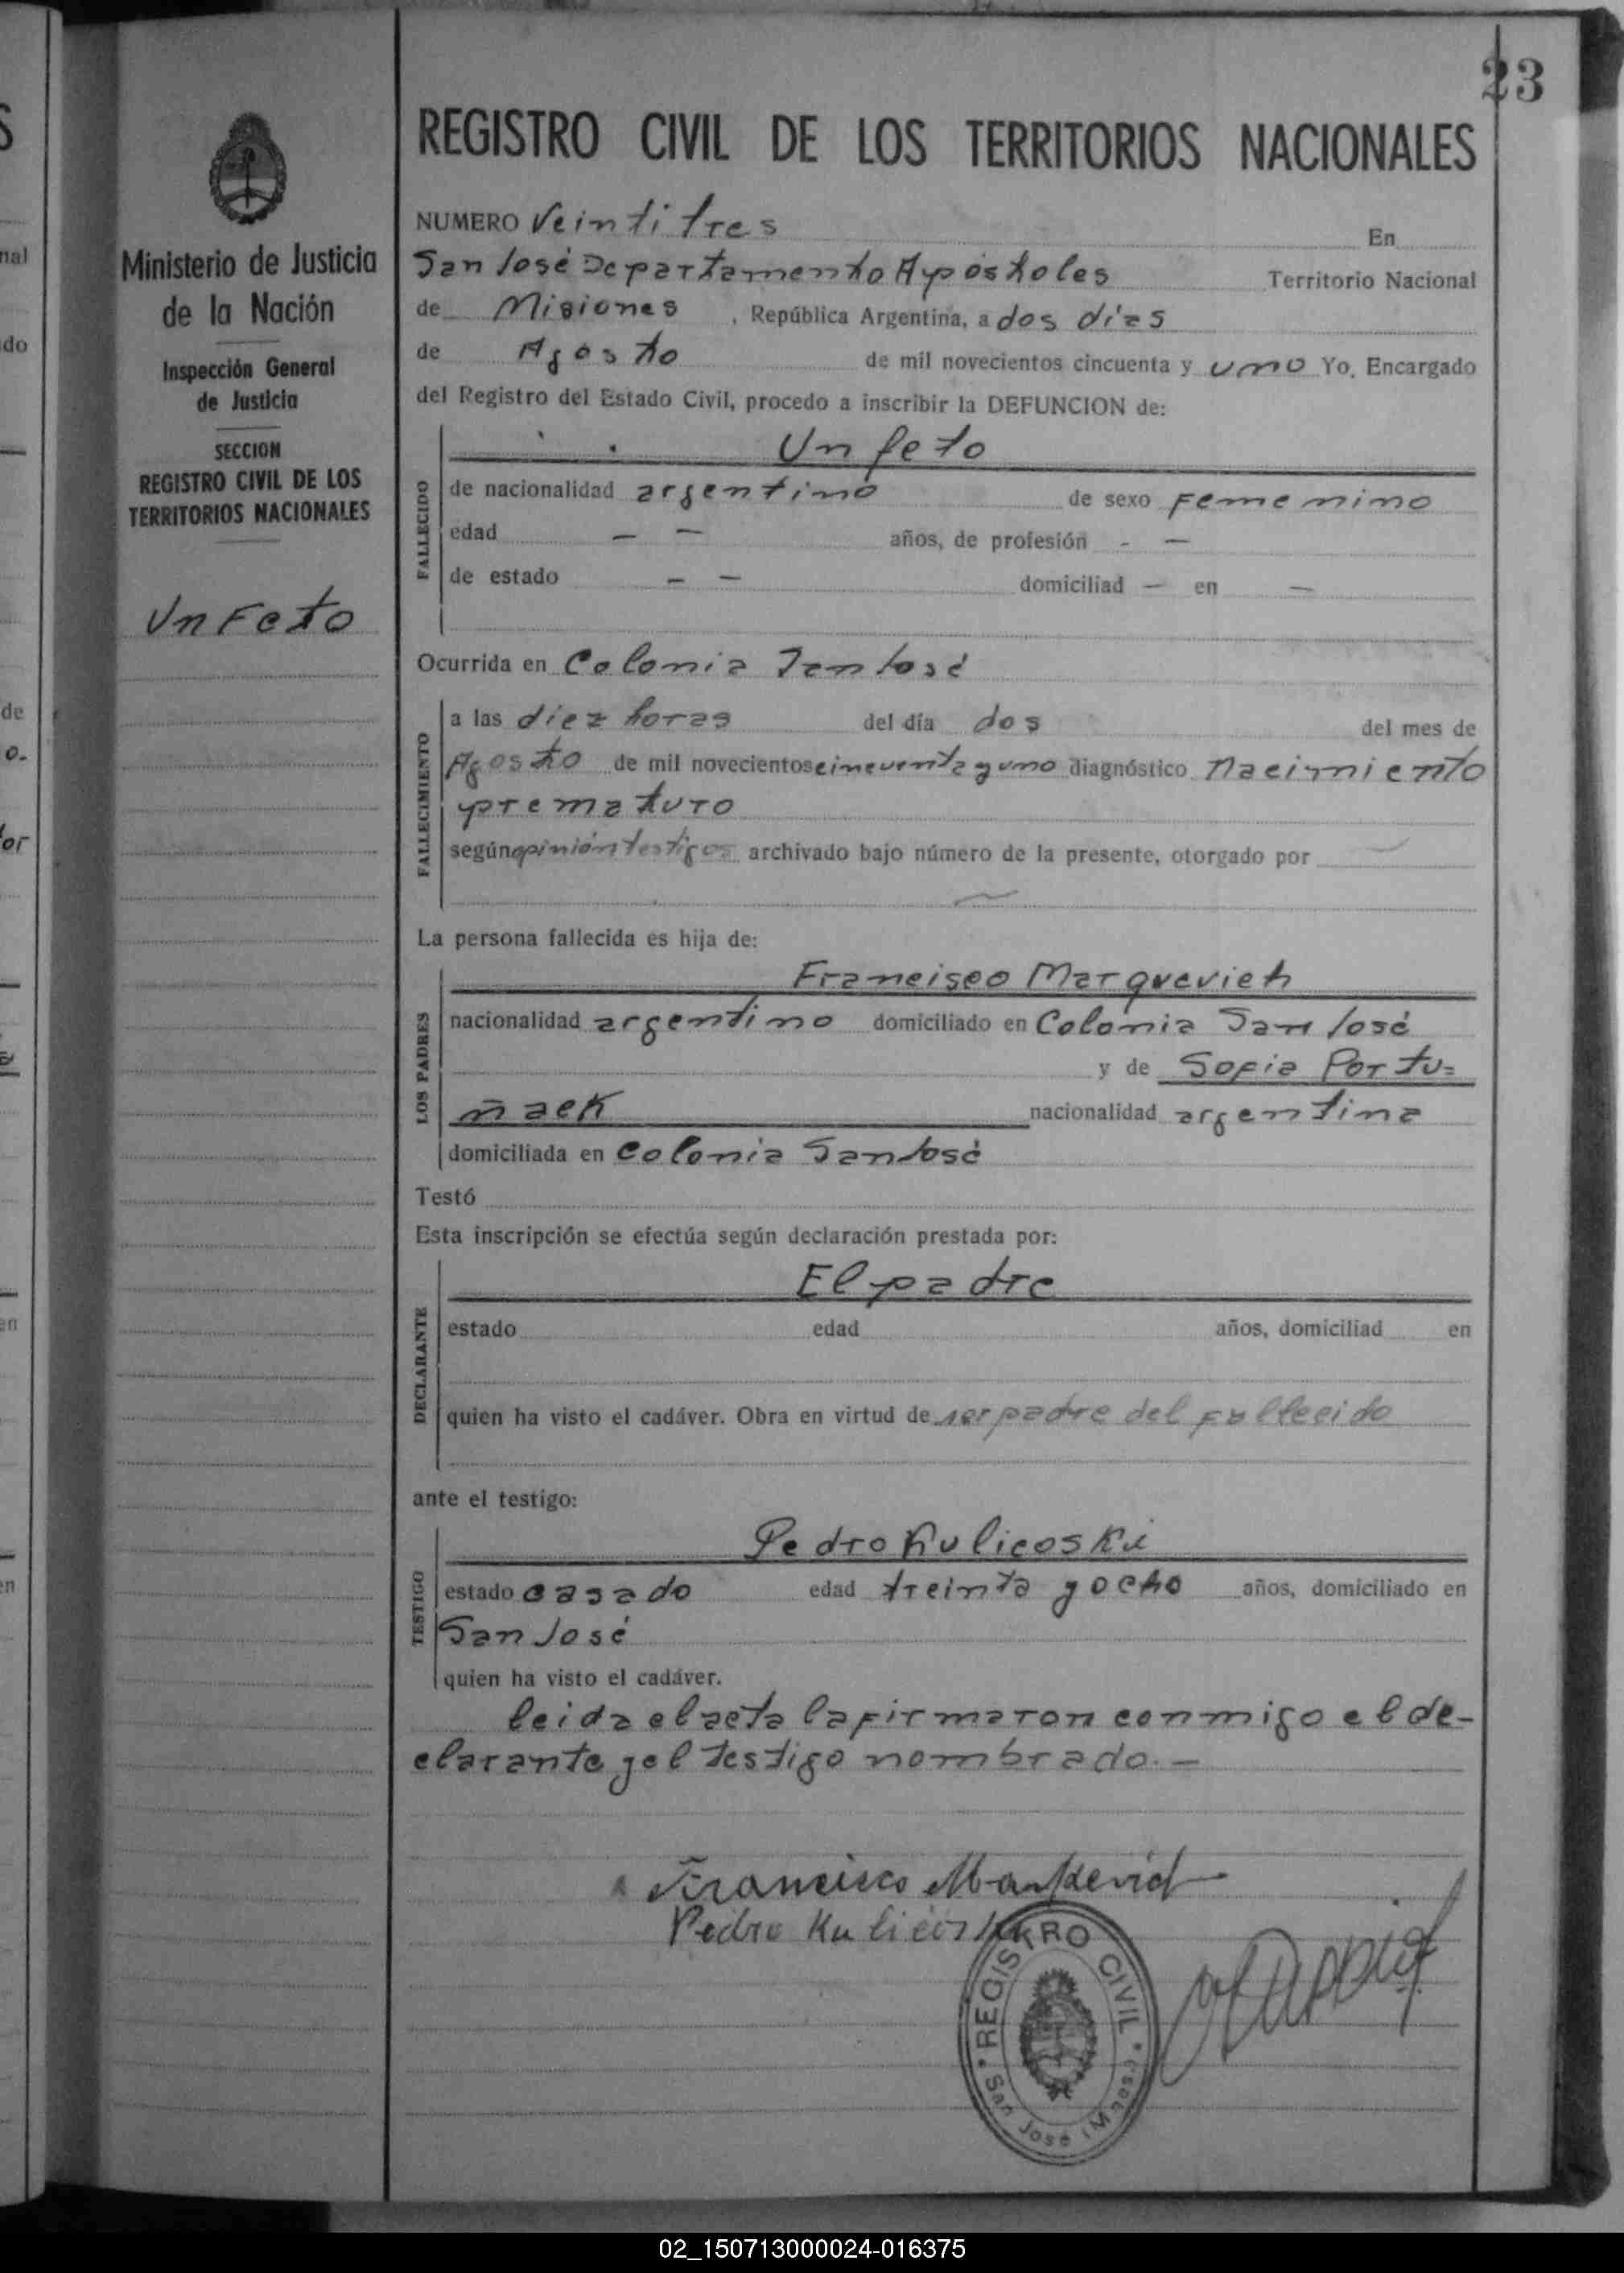 23
REGISTRO CIVIL DE LOS TERRITORIOS NACIONALES
Ministerio de Justicia
de la Nación
Inspección General
de Justicia
SECCION
REGISTRO CIVIL DE LOS
TERRITORIOS NACIONALES
Un Feto
NUMERO Veintitres En
San José Departamento Apóstoles Territorio Nacional
de Misiones , República Argentina, a dos días
de Agosto de mil novecientos cincuenta y uno Yo, Encargado
del Registro del Estado Civil, procedo a inscribir la DEFUNCION de:
FALLECIDO
Un feto
de nacionalidad argentino de sexo Femenino
edad — — años, de profesión - —
de estado — — domiciliad — en —
Ocurrida en Colonia San José
FALLECIMIENTO
a las diez horas del día dos del mes de
Agosto de mil novecientos cincuenta y uno diagnóstico Nacimiento
prematuro
según opinión testigos archivado bajo número de la presente, otorgado por
La persona fallecida es hija de:
LOS PADRES
Francisco Marquevich
nacionalidad argentino domiciliado en Colonia San José
y de Sofia Portu=
ñack nacionalidad argentina
domiciliada en Colonia San José
Testó
Esta inscripción se efectúa según declaración prestada por:
DECLARANTE
El padre
estado edad años, domiciliad en
quien ha visto el cadáver. Obra en virtud de ser padre del fallecido
ante el testigo:
TESTIGO
Pedro Kulicoski
estado casado edad treinta y ocho años, domiciliado en
San José
quien ha visto el cadáver.
leida el acta la firmaron conmigo el de-
clarante y el testigo nombrado. —
Francisco Markevich
Pedro Kulicoski
REGISTRO CIVIL
San José (Mnes.)
02_150713000024-016375